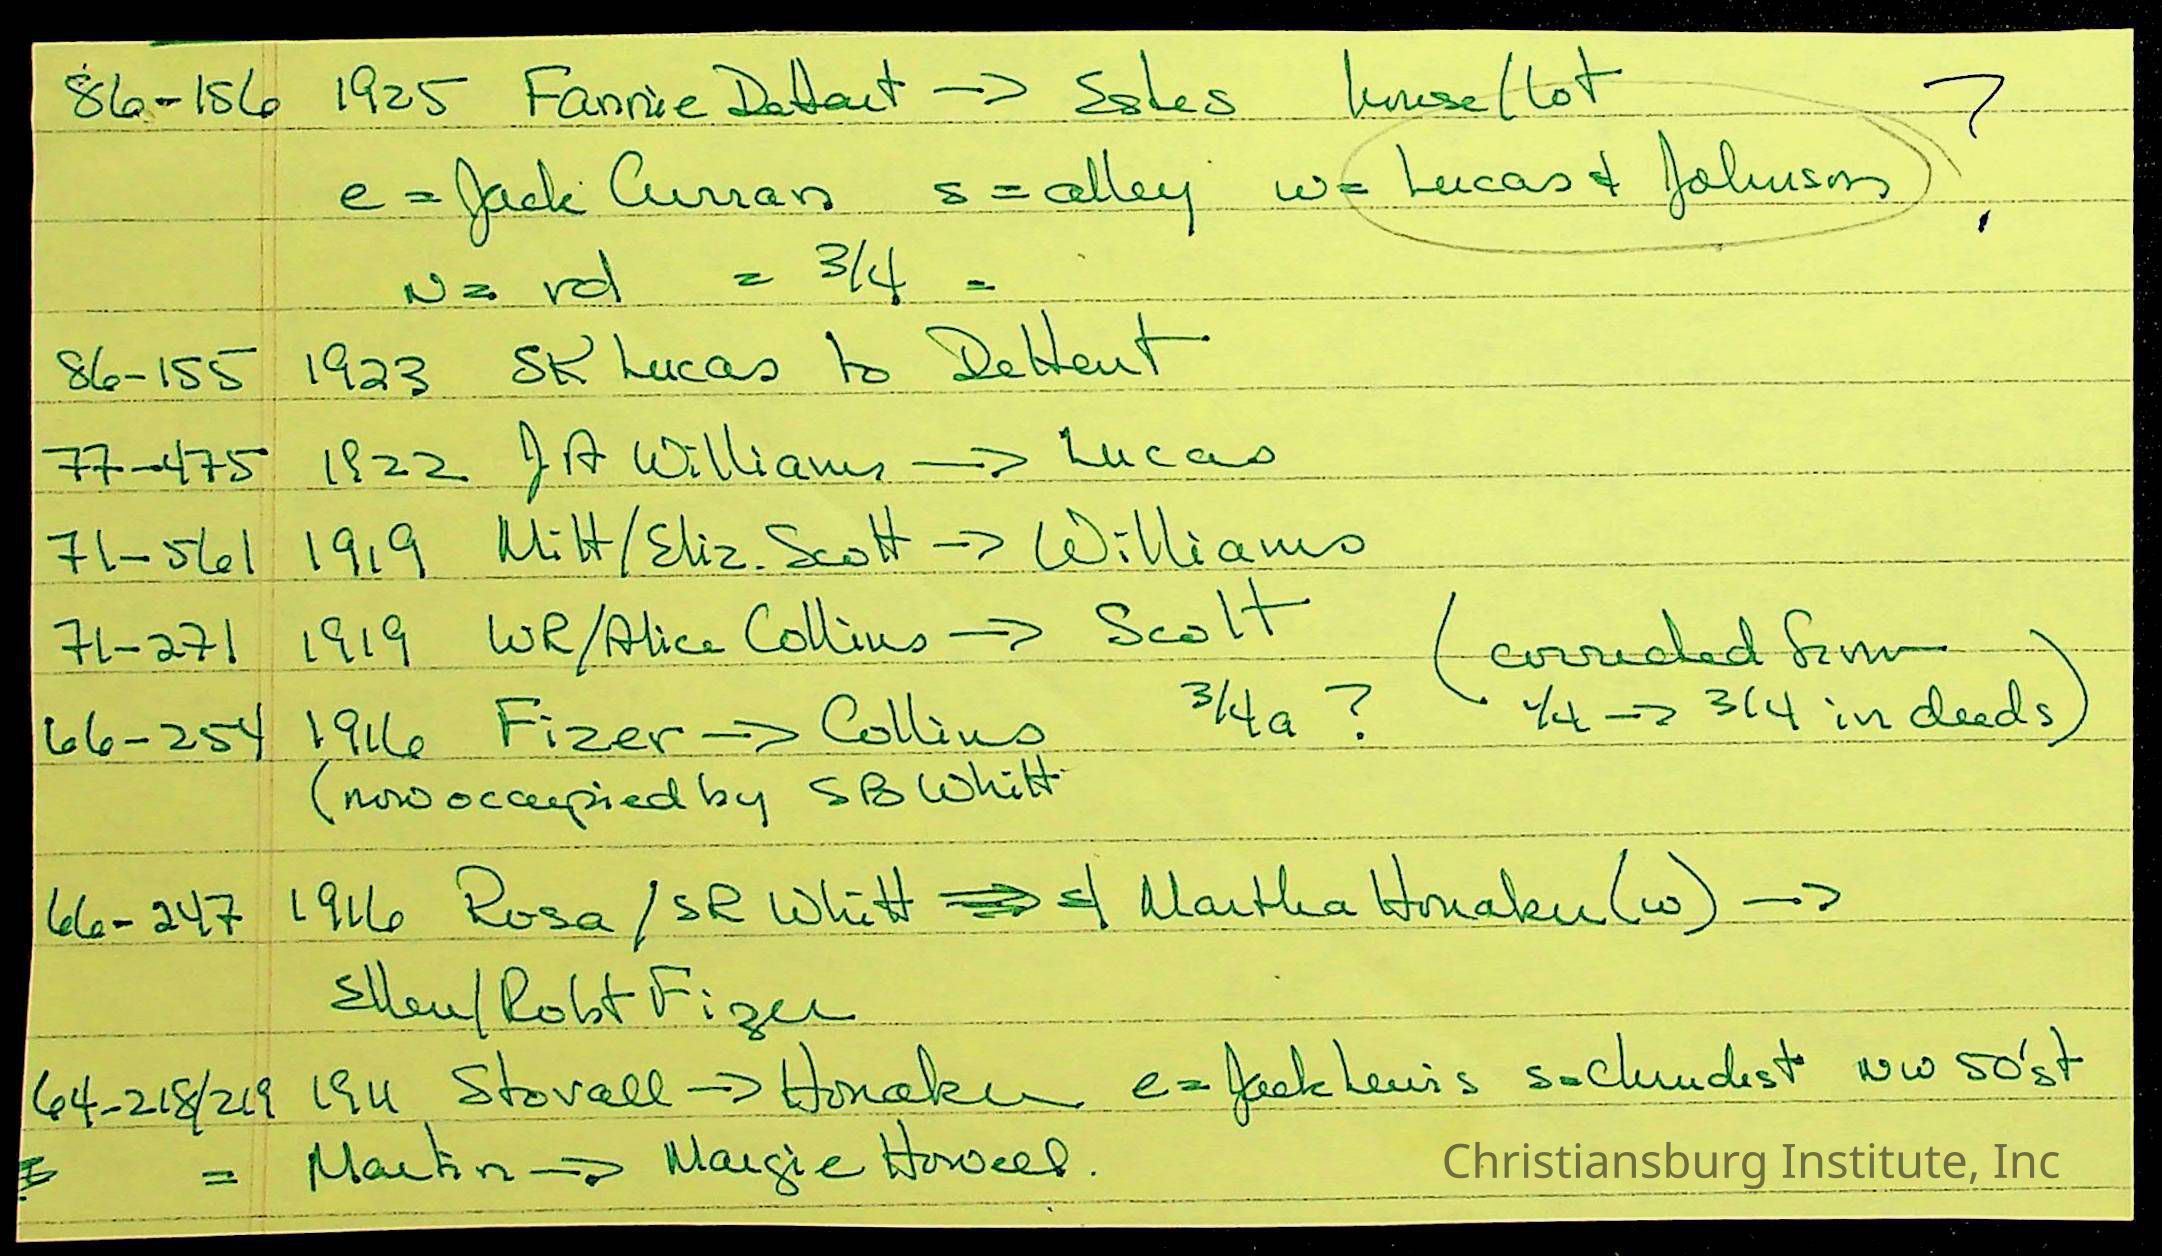 86-156 1925 Fannie DeHaut -> Estes house/lot ?
e = Jack Curran s = alley w = Lucas & Johnson
N = rd = 3/4 =
86-155 1923 SK Lucas to DeHeut
77-475 1922 JA Williams -> Lucas
71-561 1919 Milt/Eliz. Scott -> Williams
71-271 1919 WR/Alice Collins -> Scott (corrected from
66-254 1916 Fizer -> Collins 3/4a ? 1/4 -> 3/4 in deeds)
(now occupied by SB Whitt
66-247 1916 Rosa/SR Whitt & Martha Honaker (w) ->
Ellen/Robt Fizer
64-218/219 1911 Stovall -> Honaker e = Jack Lewis s = NW 50' st
= Martin -> Margie Howell.
Christiansburg Institute, Inc